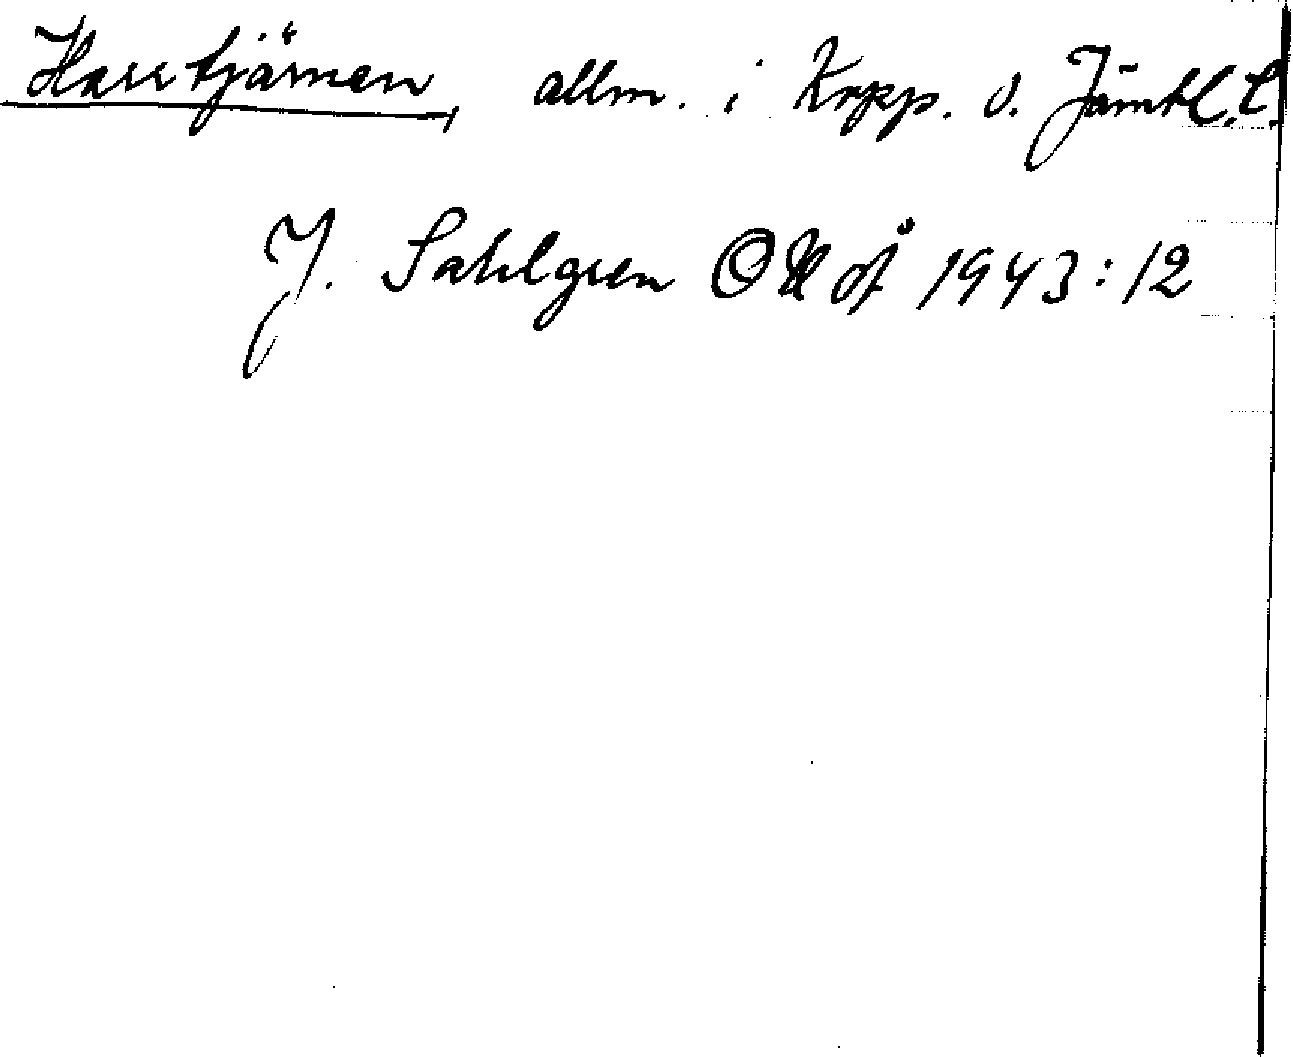 Harrtjärnen, allm. i Kopp. o. Jämtl. l.
J. Sahlgren OH oÅ 1943:12